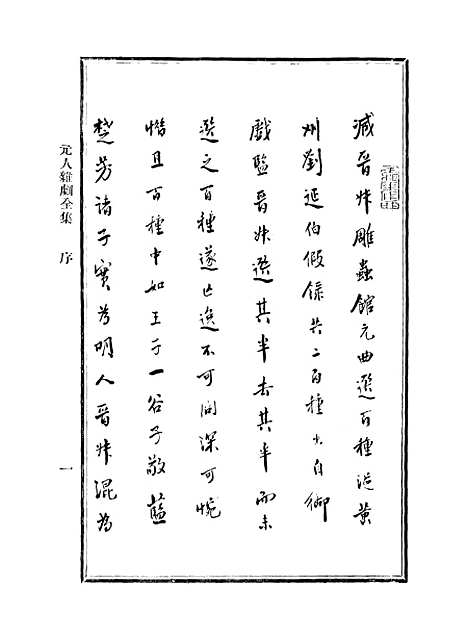 減晉叔雕蟲館元曲選百種從黃
州劉延伯假錄共二百種出自御
戲監晉叔選其半去其半而未
選之百種遂亡逸不可問深可惋
惜且百種中如王子一谷子敬藍
楚芳諸子實為明人晉叔混為
元人雜劇全集 序 一